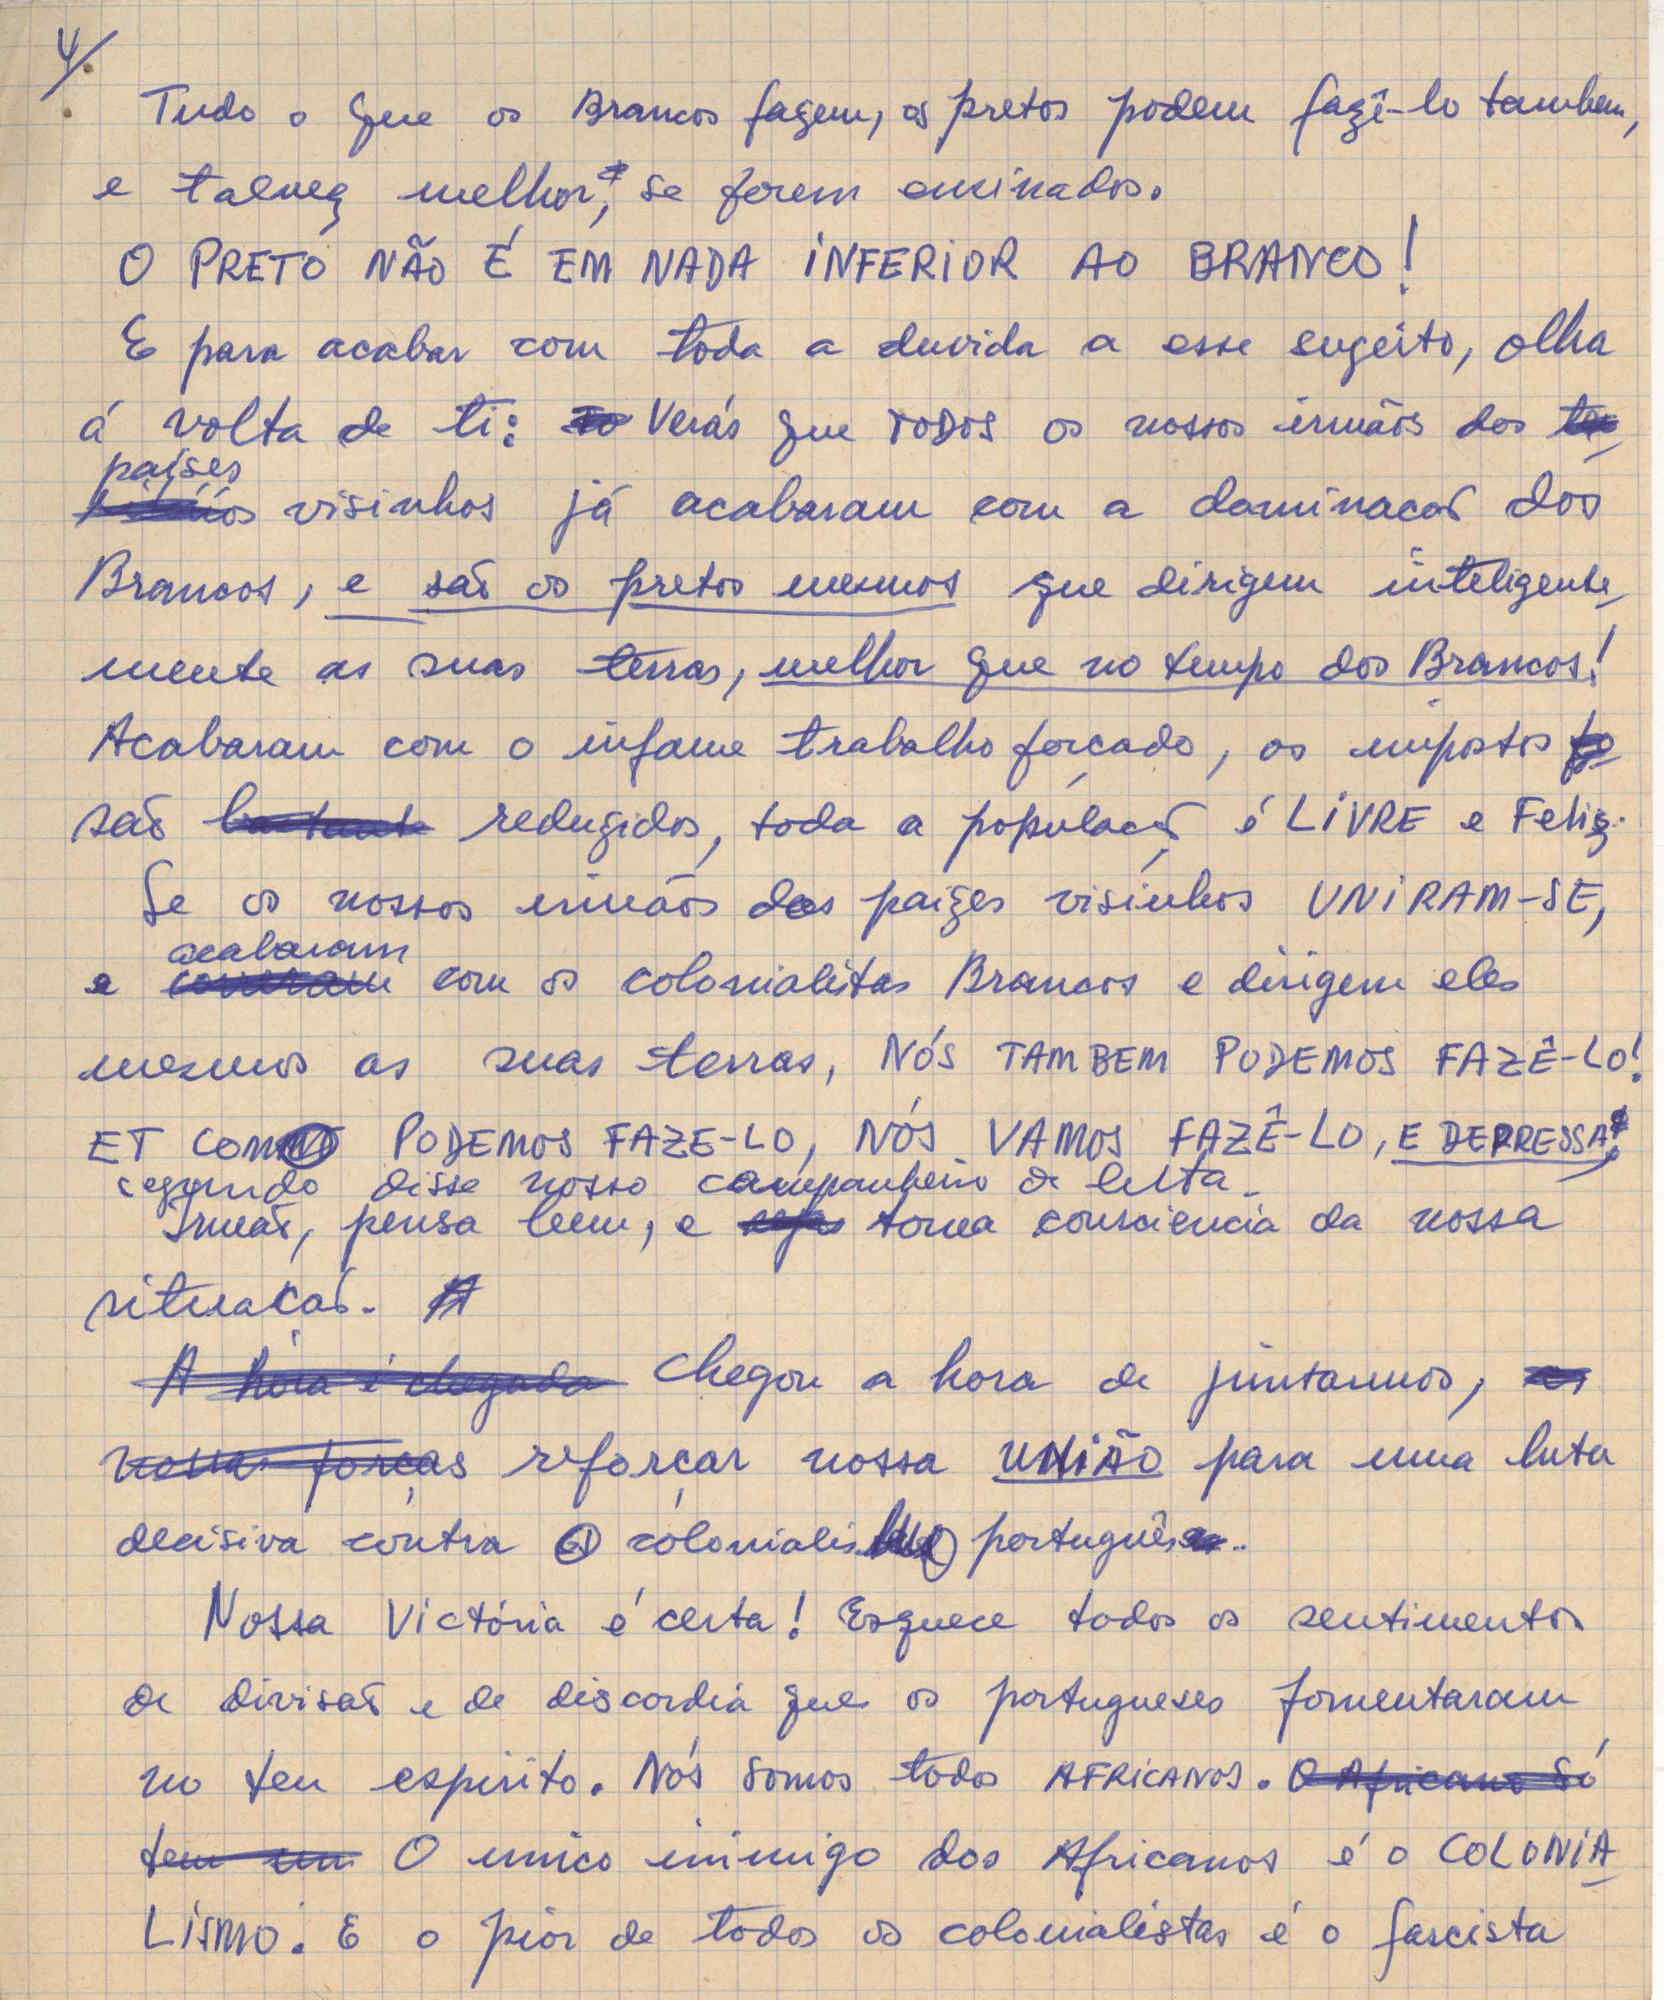 4/
Tudo o que os Brancos fazem, os pretos podem fazê-lo tambem,
e talvez melhor, se forem ensinados.
O PRETO NÃO É EM NADA INFERIOR AO BRANCO!
E para acabar com toda a duvida a esse sugeito, olha
á volta de ti: Verás que TODOS os nossos irmãos dos
países
visinhos já acabaram com a dominacão dos
Brancos, e são os pretos mesmos que dirigem inteligente
mente as suas terras, melhor que no tempo dos Brancos!
Acabaram com o infame trabalho forcado, os impostos
são reduzidos, toda a populaçaõ é LIVRE e Feliz.
Se os nossos irmãos dos paizes visinhos UNIRAM-SE,
acabaram
e com os colonialistas Brancos e dirigem eles
mesmos as suas terras, NÓS TAMBEM PODEMOS FAZÊ-LO!
ET COMO PODEMOS FAZE-LO, NÓS VAMOS FAZÊ-LO, E DEPRESSA,
segundo disse nosso companheiro de luta.
Irmaõ, pensa bem, e toma consciencia da nossa
situacaõ.
A hora é chegada Chegou a hora de juntarmos,
nossas forças reforçar nossa UNIÃO para uma luta
decisiva contra o colonialis português.
Nossa Victória é certa! Esquece todos os sentimentos
de divisaõ e de discordia que os portugueses fomentaram
no teu espirito. Nós somos todos AFRICANOS. O Africano só
tem um O unico inimigo dos Africanos é o COLONIA
LISMO. E o pior de todos os colonialistas é o fascista